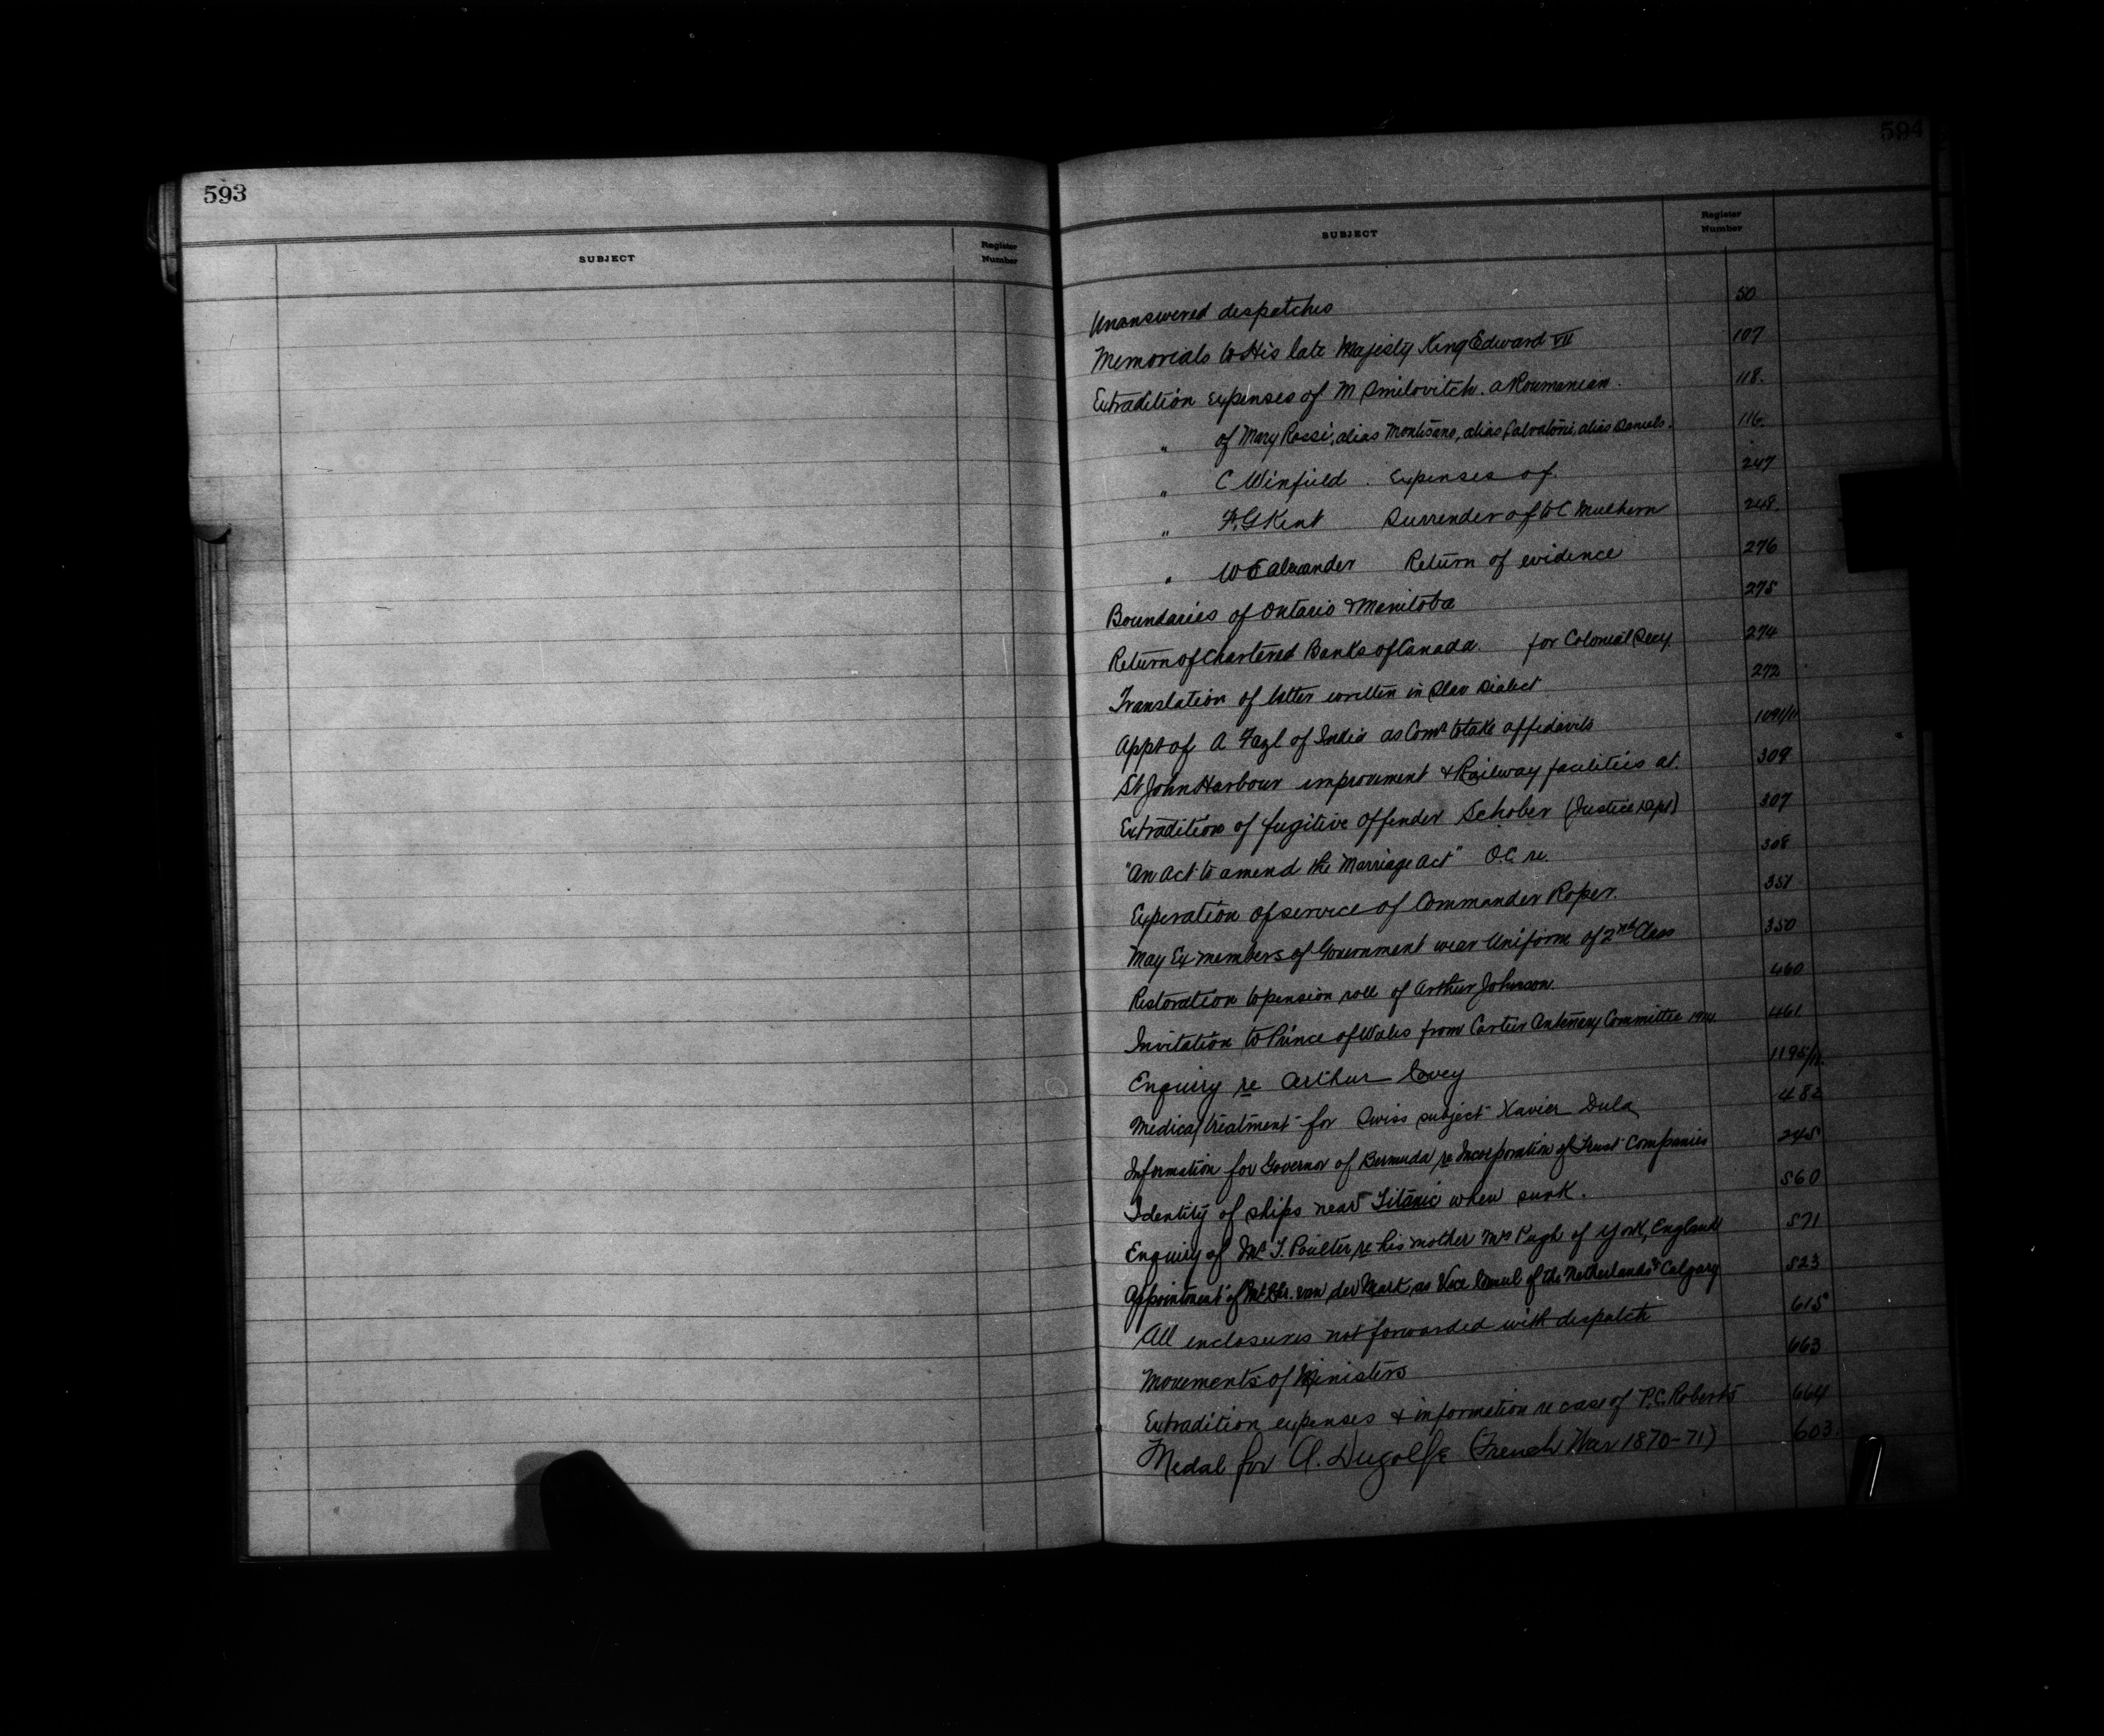 593
SUBJECT
Register Number
594
SUBJECT
Register Number
Unanswered despatches 50
Memorials to His late Majesty King Edward VII 107
Extradition expenses of M Smilovitch. a Roumanian. 118.
" of Mary Rossi, alias Montisano, alias Salvatori, alias Daniels. 116.
" C Winfield. Expenses of. 247
" F.G Kent Surrender of to C Mulhern 248.
" W E Alexander Return of evidence 276
Boundaries of Ontario & Manitoba 275
Return of Chartered Banks of Canada. for Colonial Secy 274
Translation of letter written in Slav Dialect 272
Appt of A Fazl of India as Comr to take affidavits 1091/11
St John Harbour improvement & Railway facilities at. 309
Extradition of fugitive offender Schober (Justice Dept) 307
"An Act to amend the Marriage Act" O.C. re. 308
Experation of service of Commander Roper. 351
May Ex-members of Government wear Uniform of 2nd Class 350
Restoration to pension roll of Arthur Johnson. 460
Invitation to Prince of Wales from Cartier Centenary Committee 1914. 461
Enquiry re Arthur Covey 1195/11.
Medical treatment for Swiss subject Xavier Dula 482
Information for Governor of Bermuda re Incorporation of Trust Companies 245
Identity of ships near Titanic when sunk. 560
Enquiry of Mr. T. Poulter re his mother Mrs Pugh of York, England 571
Appointment of Mr. van der Mark, as Vice Consul of the Netherlands Calgary 523
All enclosures not forwarded with despatch 615
Movements of Ministers 663
Extradition expenses & information re case of P.C. Roberts 664
Medal for A. Dugolfe (French War 1870-71) 603.